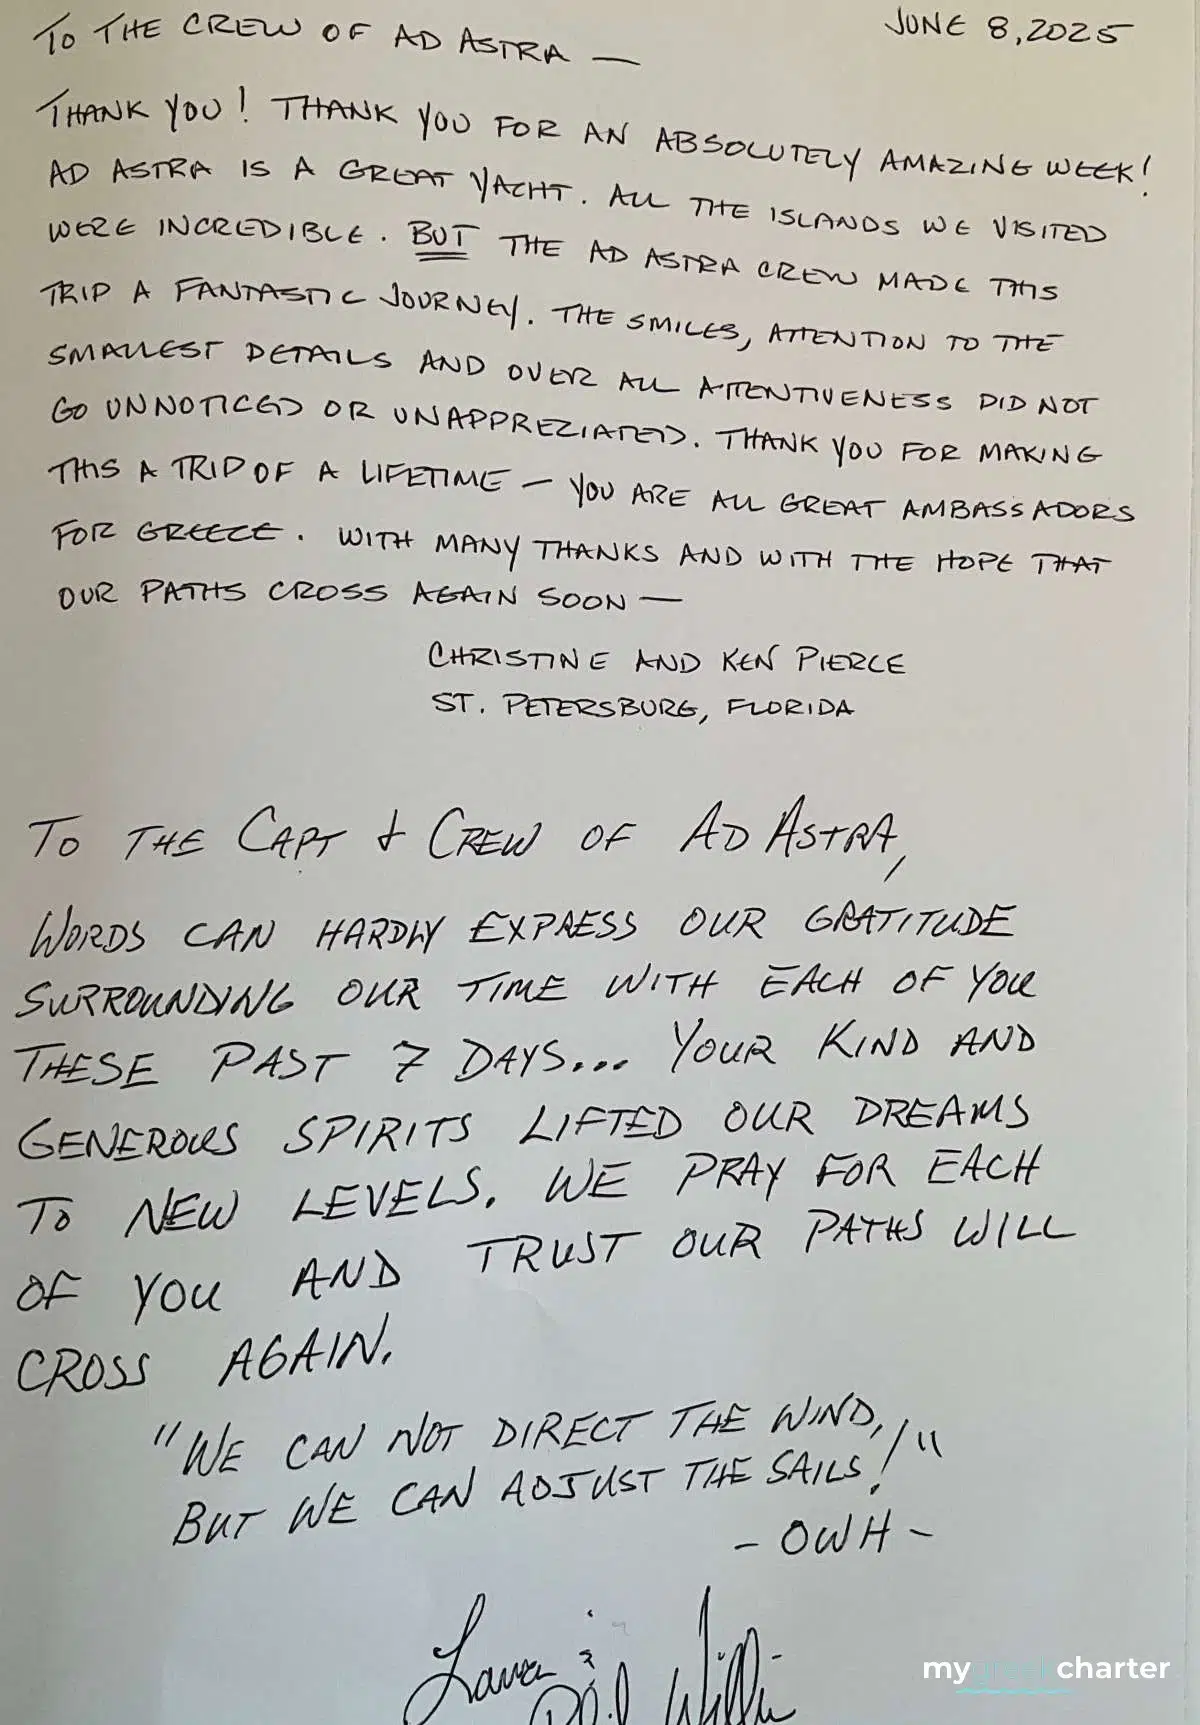 TO THE CREW OF AD ASTRA —
JUNE 8, 2025
THANK YOU! THANK YOU FOR AN ABSOLUTELY AMAZING WEEK!
AD ASTRA IS A GREAT YACHT. ALL THE ISLANDS WE VISITED
WERE INCREDIBLE. BUT THE AD ASTRA CREW MADE THIS
TRIP A FANTASTIC JOURNEY. THE SMILES, ATTENTION TO THE
SMALLEST DETAILS AND OVER ALL ATTENTIVENESS DID NOT
GO UNNOTICED OR UNAPPREZIATED. THANK YOU FOR MAKING
THIS A TRIP OF A LIFETIME — YOU ARE ALL GREAT AMBASSADORS
FOR GREECE. WITH MANY THANKS AND WITH THE HOPE THAT
OUR PATHS CROSS AGAIN SOON —
CHRISTINE AND KEN PIERCE
ST. PETERSBURG, FLORIDA
TO THE CAPT & CREW OF AD ASTRA,
WORDS CAN HARDLY EXPRESS OUR GRATITUDE
SURROUNDING OUR TIME WITH EACH OF YOU
THESE PAST 7 DAYS... YOUR KIND AND
GENEROUS SPIRITS LIFTED OUR DREAMS
TO NEW LEVELS. WE PRAY FOR EACH
OF YOU AND TRUST OUR PATHS WILL
CROSS AGAIN.
"WE CAN NOT DIRECT THE WIND,
BUT WE CAN ADJUST THE SAILS!"
- OWH -
mygreekcharter